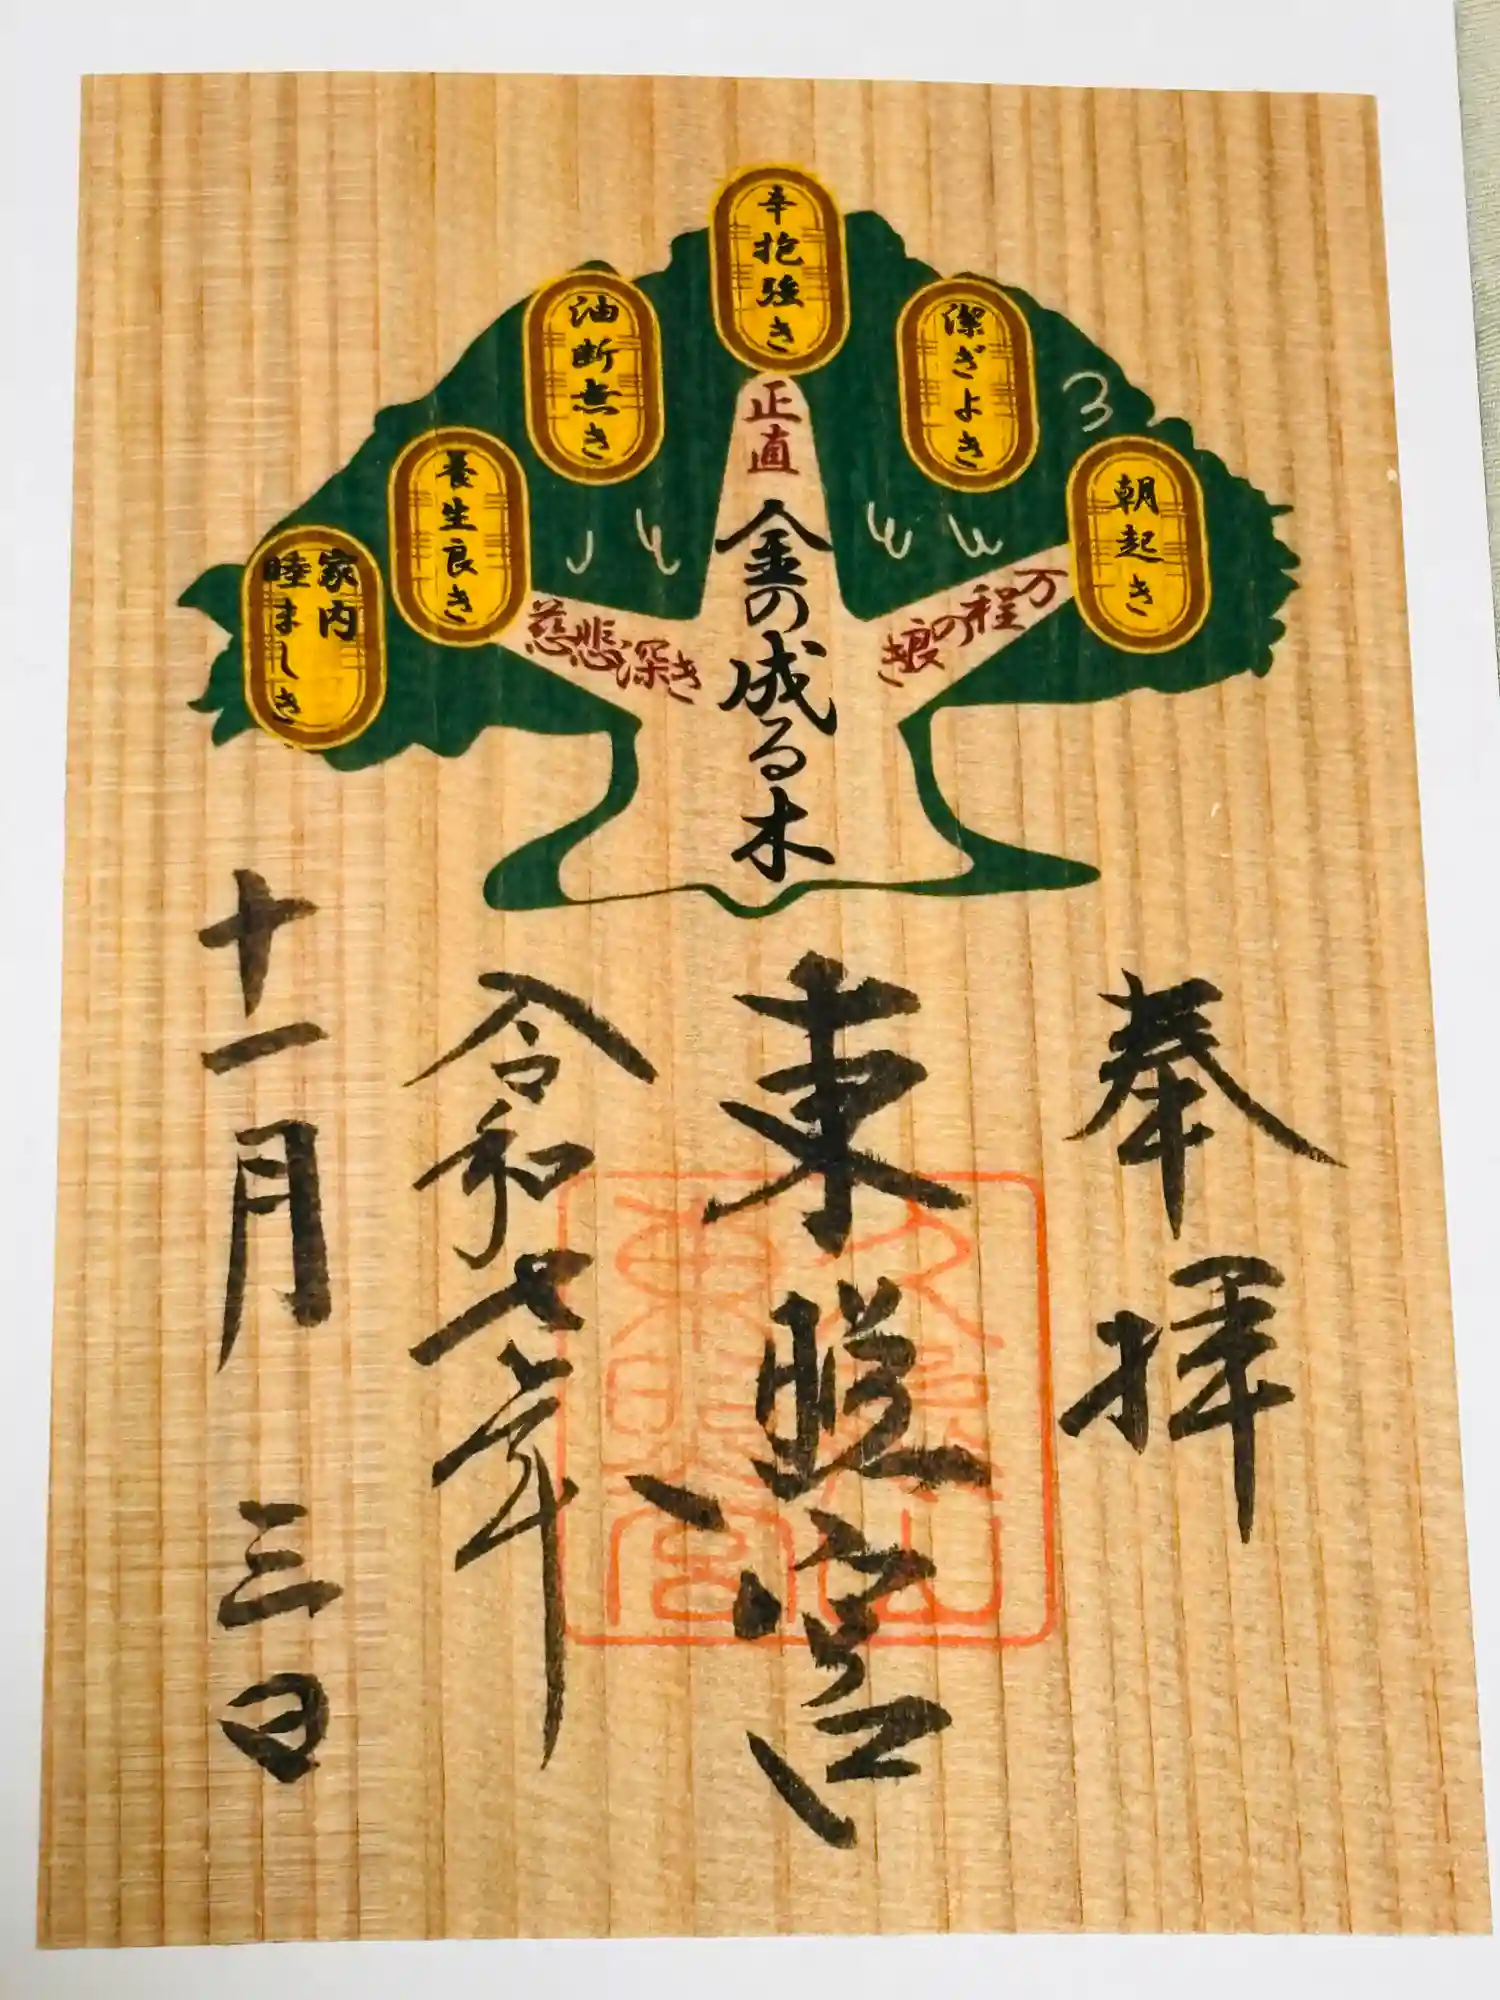 朝起き
潔ぎよき
辛抱強き
油断無き
養生良き
家内
睦ましき
万の程の良き
正直
慈悲深き
金の成る木
奉拝
東照宮
令和七年
十一月三日
久能山
東照宮